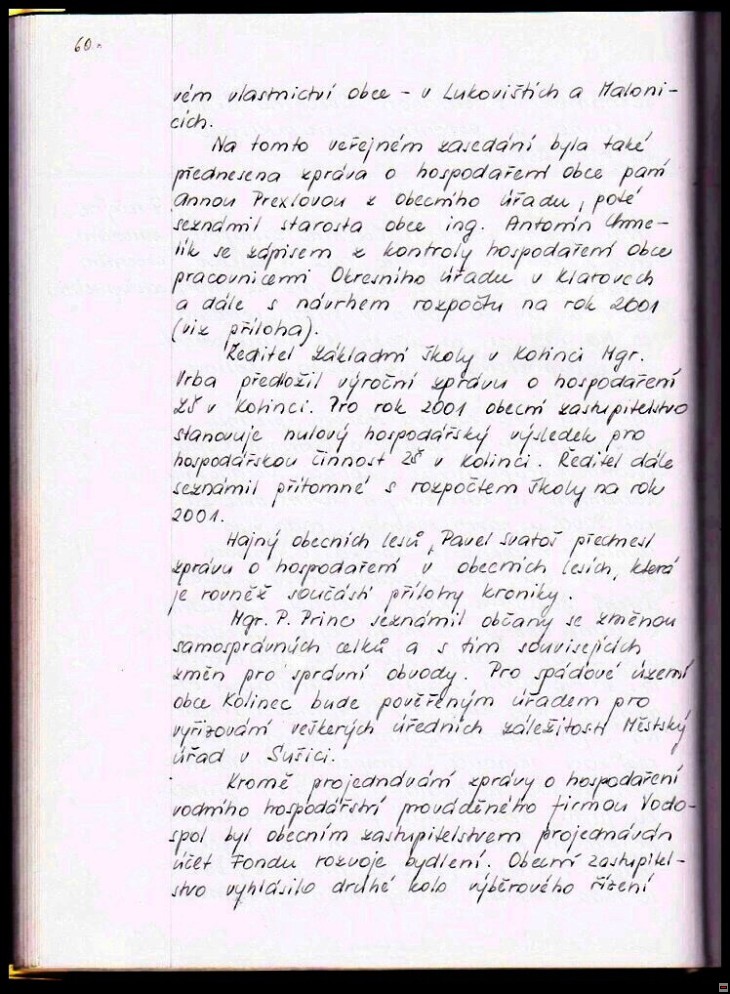 60.
vém vlastnictví obce - v Lukovištích a Maloni-
cích.
Na tomto veřejném zasedání byla také
přednesena zpráva o hospodaření obce paní
Annou Prexlovou z Obecního úřadu, poté
seznámil starosta obce ing. Antonín Chme-
lík se zápisem z kontroly hospodaření obce
pracovnicemi Okresního úřadu v Klatovech
a dále s návrhem rozpočtu na rok 2001
(viz příloha).
Ředitel Základní školy v Kolinci Mgr.
Vrba předložil výroční zprávu o hospodaření
ZŠ v Kolinci. Pro rok 2001 obecní zastupitelstvo
stanovuje nulový hospodářský výsledek pro
hospodářskou činnost ZŠ v Kolinci. Ředitel dále
seznámil přítomné s rozpočtem školy na rok
2001.
Hajný obecních lesů, Pavel Svatoš přednesl
zprávu o hospodaření v obecních lesích, která
je rovněž součástí přílohy kroniky.
Mgr. P. Princ seznámil občany se změnou
samosprávných celků a s tím souvisejících
změn pro správní obvody. Pro spádové území
obce Kolinec bude pověřeným úřadem pro
vyřizování veškerých úředních záležitostí Městský
úřad v Sušici.
Kromě projednávání zprávy o hospodaření
vodního hospodářství prováděného firmou Vodo-
spol byl obecním zastupitelstvem projednáván
účet Fondu rozvoje bydlení. Obecní zastupitel-
stvo vyhlásilo druhé kolo výběrového řízení